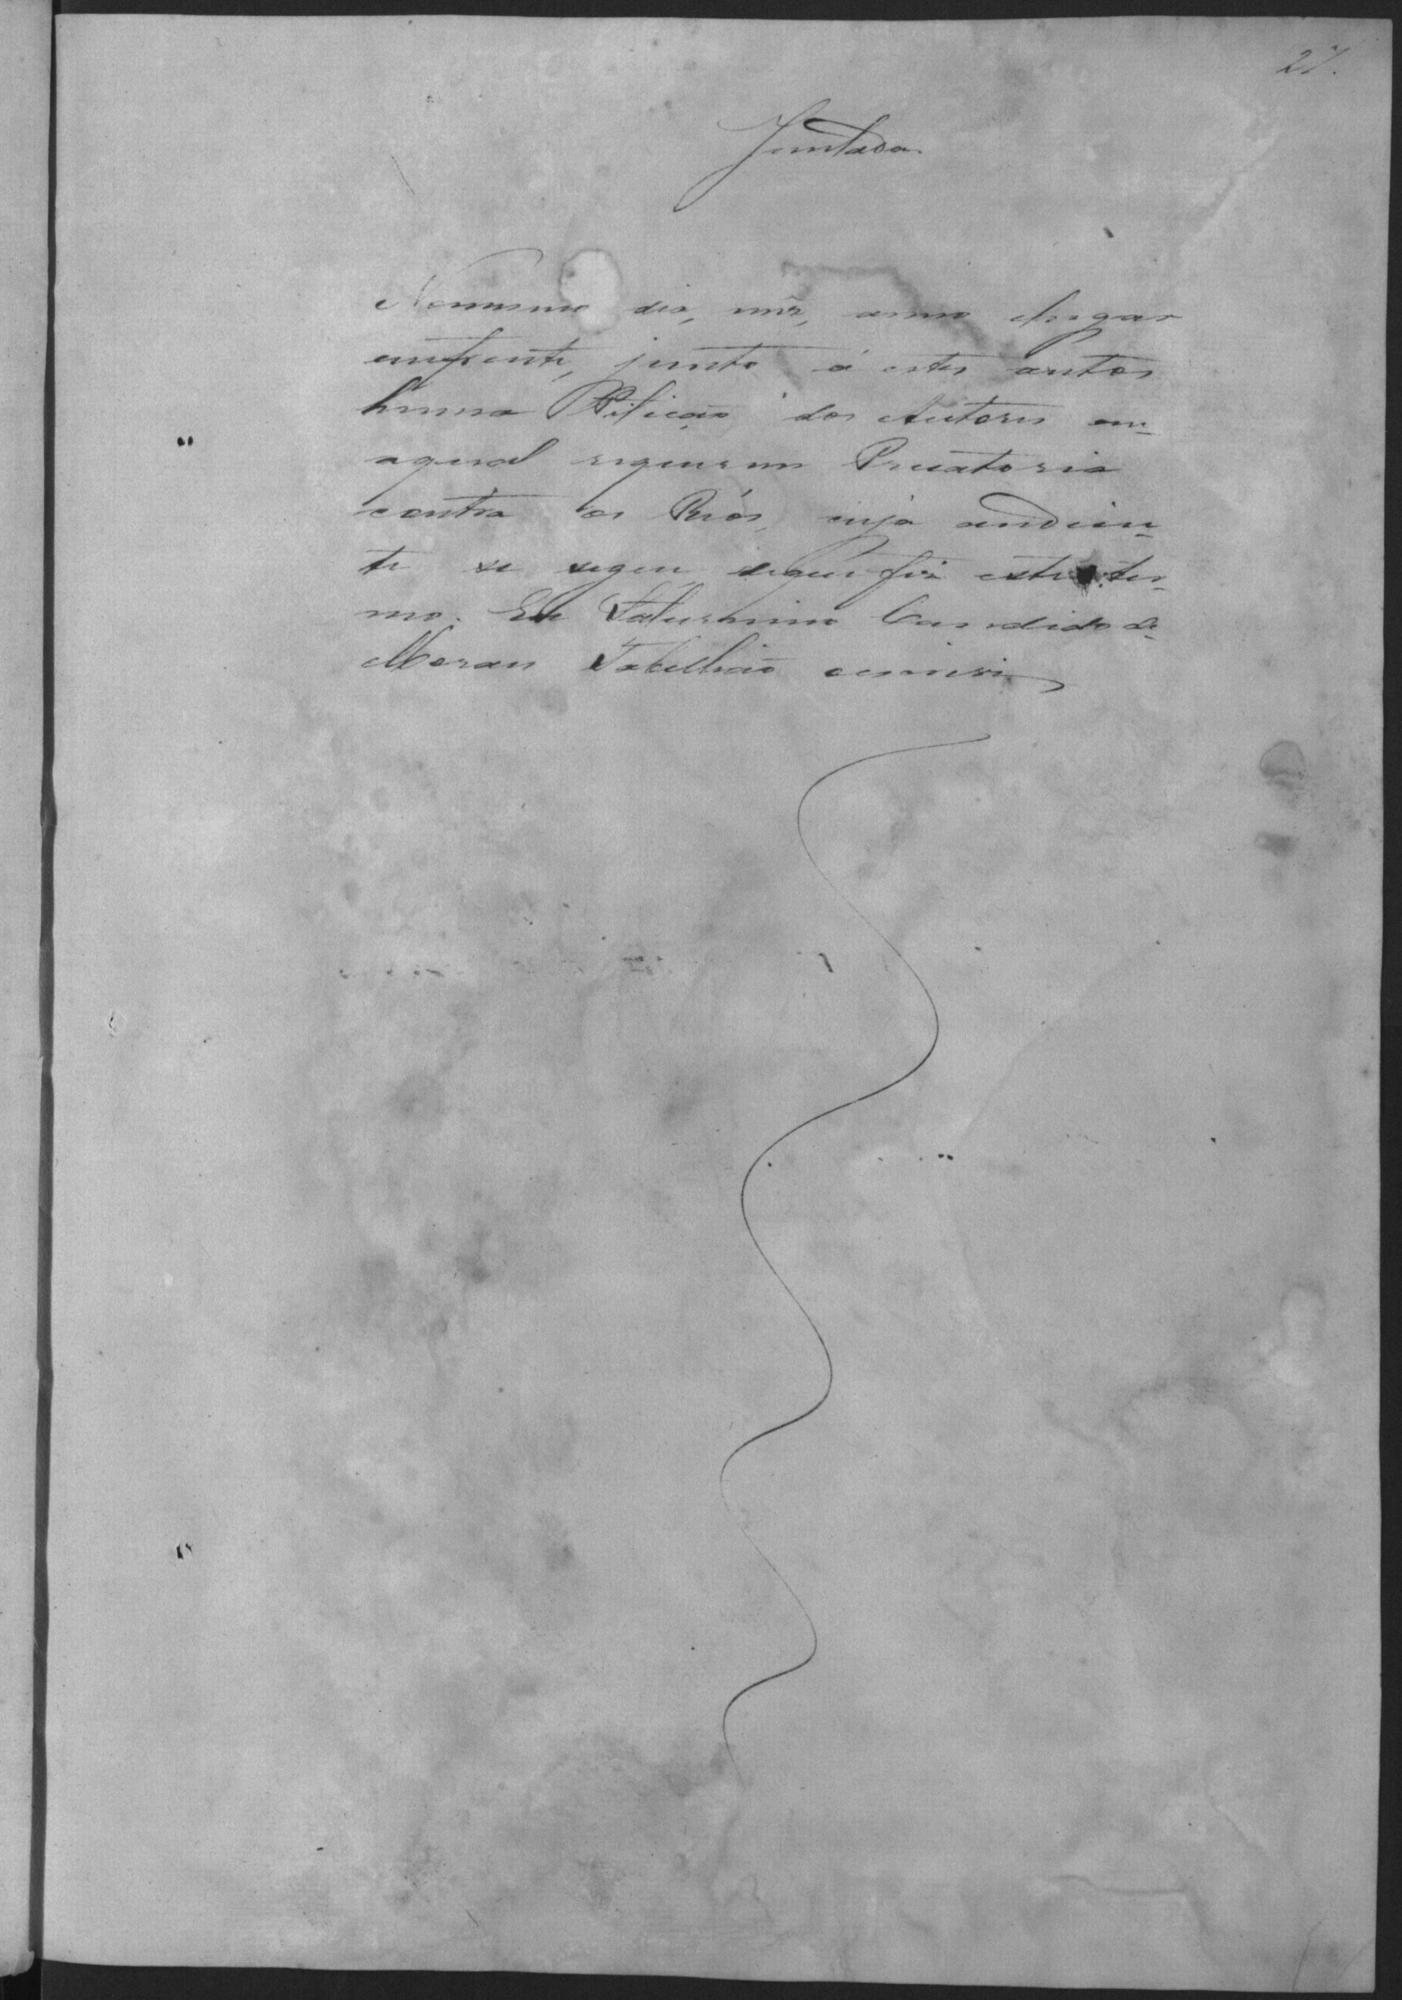 27.
Juntada
No mesmo dia, mez, anno elugar
emfrente, junto á estes autos
huma Petição dos Autores em
aqual requerem Precatoria
contra os Réos, cuja andian-
te se segue, doque fiz este ter-
mo. Eu Saturnino Candido de
Moraes Tabellião escrevi